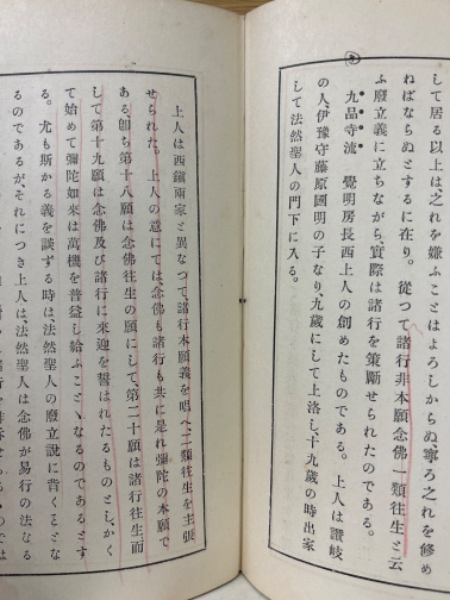 して居る以上は、之れを嫌ふことはよろしからぬ、寧ろ之れを修め
ねばならぬとするに在り。從つて諸行非本願念佛一類往生と云
ふ廢立義に立ちながら、實際は諸行を策勵せられたのである。
九品寺流 覺明房長西上人の創めたものである。上人は讚岐
の人、伊豫守藤原國明の子なり、九歳にして上洛し十九歳の時出家
して法然聖人の門下に入る。
上人は西鎭兩家と異なつて、諸行本願義を唱へ、二類往生を主張
せられた。上人の意にては、念佛も諸行も共に是れ彌陀の本願で
ある、卽ち第十八願は念佛往生の願にして第二十願は諸行往生、而
して第十九願は念佛及び諸行に來迎を誓はれたるものとし、かく
て始めて彌陀如來は萬機を普益し給ふことゝなるのであるとす
る。尤も斯かる義を談ずる時は、法然聖人の廢立說に背くことな
るのであるが、それにつき上人は、法然聖人は念佛が易行の法なる